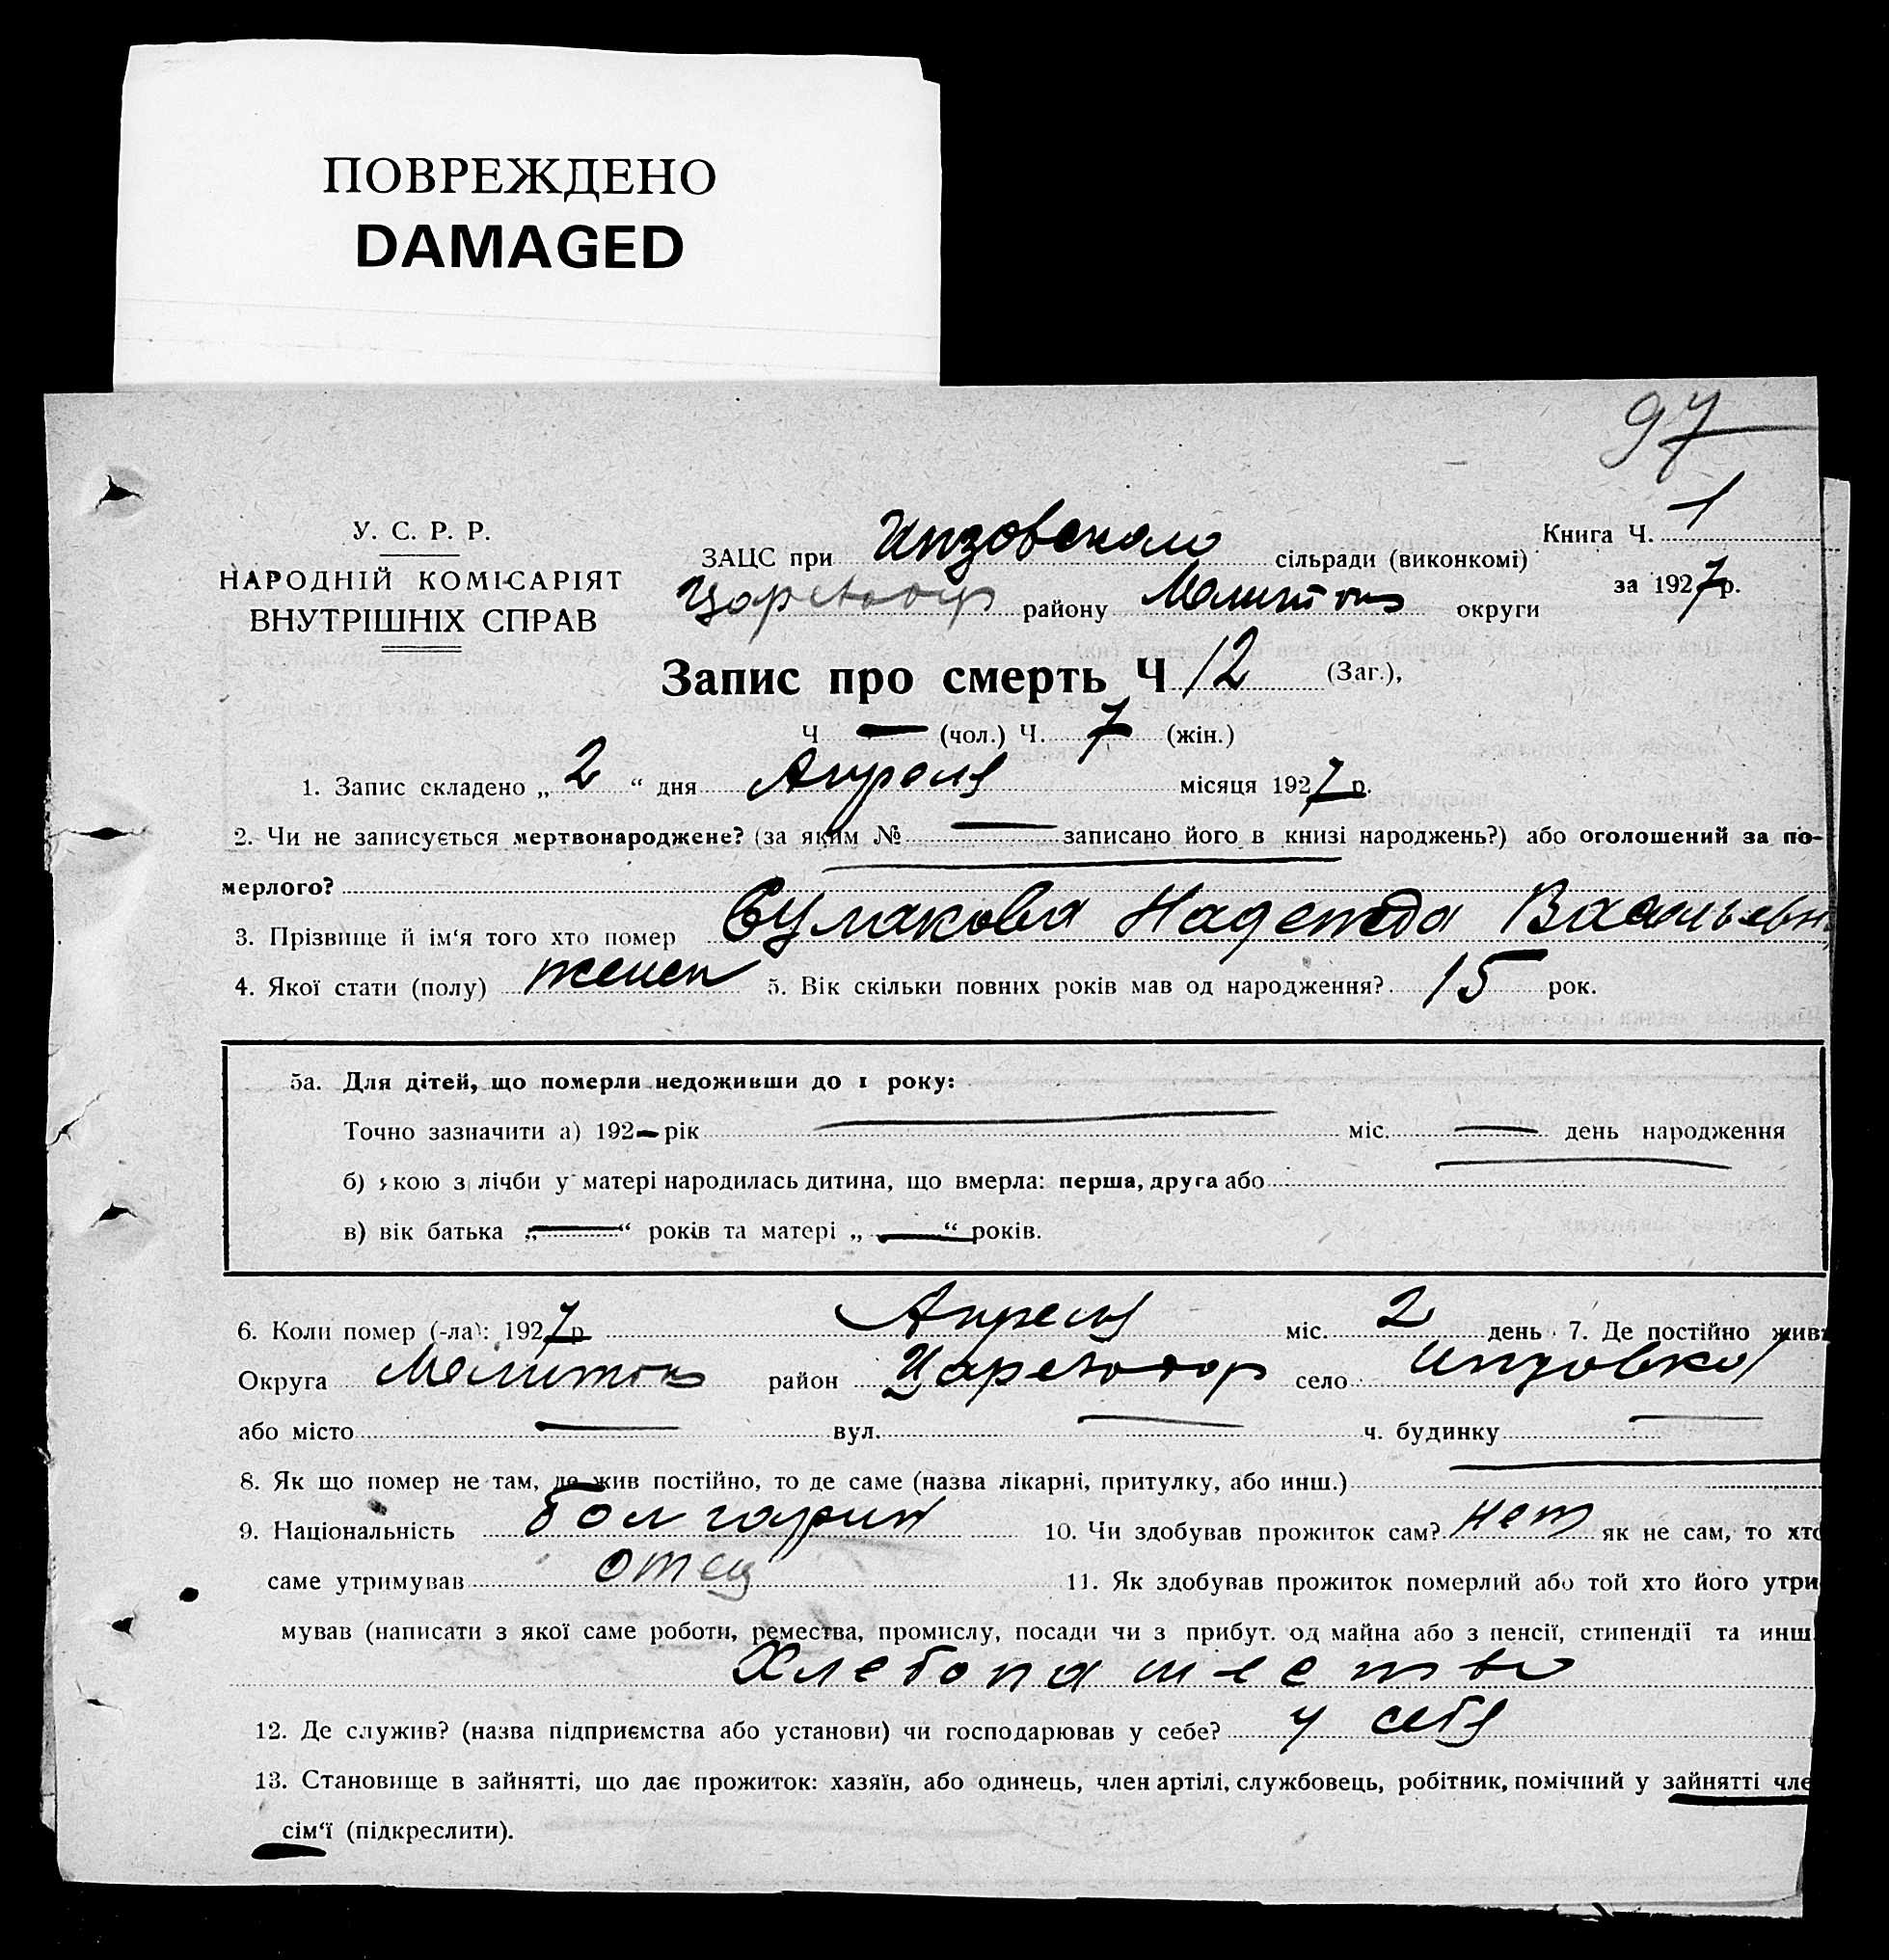 ПОВРЕЖДЕНО
DAMAGED
97
У. С. Р. Р.
НАРОДНІЙ КОМІСАРІЯТ
ВНУТРІШНІХ СПРАВ
ЗАЦС при Инзовского сільради (виконкомі)
Книга Ч. 1
за 1927 р.
району Мелитоп округи
Запис про смерть Ч 12 (Заг.),
Ч — (чол.) Ч. 7 (жін.)
1. Запис складено „ 2 “ дня Апреля місяця 1927 р.
2. Чи не записується мертвонароджене? (за яким № — записано його в книзі народжень?) або оголошений за по-
мерлого?
3. Прізвище й ім'я того хто помер Надежда Васильевн
4. Якої стати (полу) женск 5. Вік скільки повних років мав од народження? 15 рок.
5а. Для дітей, що померли недоживши до 1 року:
Точно зазначити а) 192— рік — міс. — день народження
б) якою з лічби у матері народилась дитина, що вмерла: перша, друга або —
в) вік батька „—“ років та матері „—“ років.
6. Коли помер (-ла): 1927 р Апреля міс. 2 день 7. Де постійно жив
Округа Мелитоп район Царевод село Инзовка
або місто — вул. — ч. будинку —
8. Як що помер не там, де жив постійно, то де саме (назва лікарні, притулку, або инш.) —
9. Національність болгарин 10. Чи здобував прожиток сам? нет як не сам, то хто
саме утримував отец 11. Як здобував прожиток померлий або той хто його утри
мував (написати з якої саме роботи, ремества, промислу, посади чи з прибут. од майна або з пенсії, стипендії та инш.
Хлебопашество
12. Де служив? (назва підприємства або установи) чи господарював у себе? у себя
13. Становище в зайнятті, що дає прожиток: хазяїн, або одинець, член артілі, службовець, робітник, помічний у зайнятті чле
сім'ї (підкреслити).